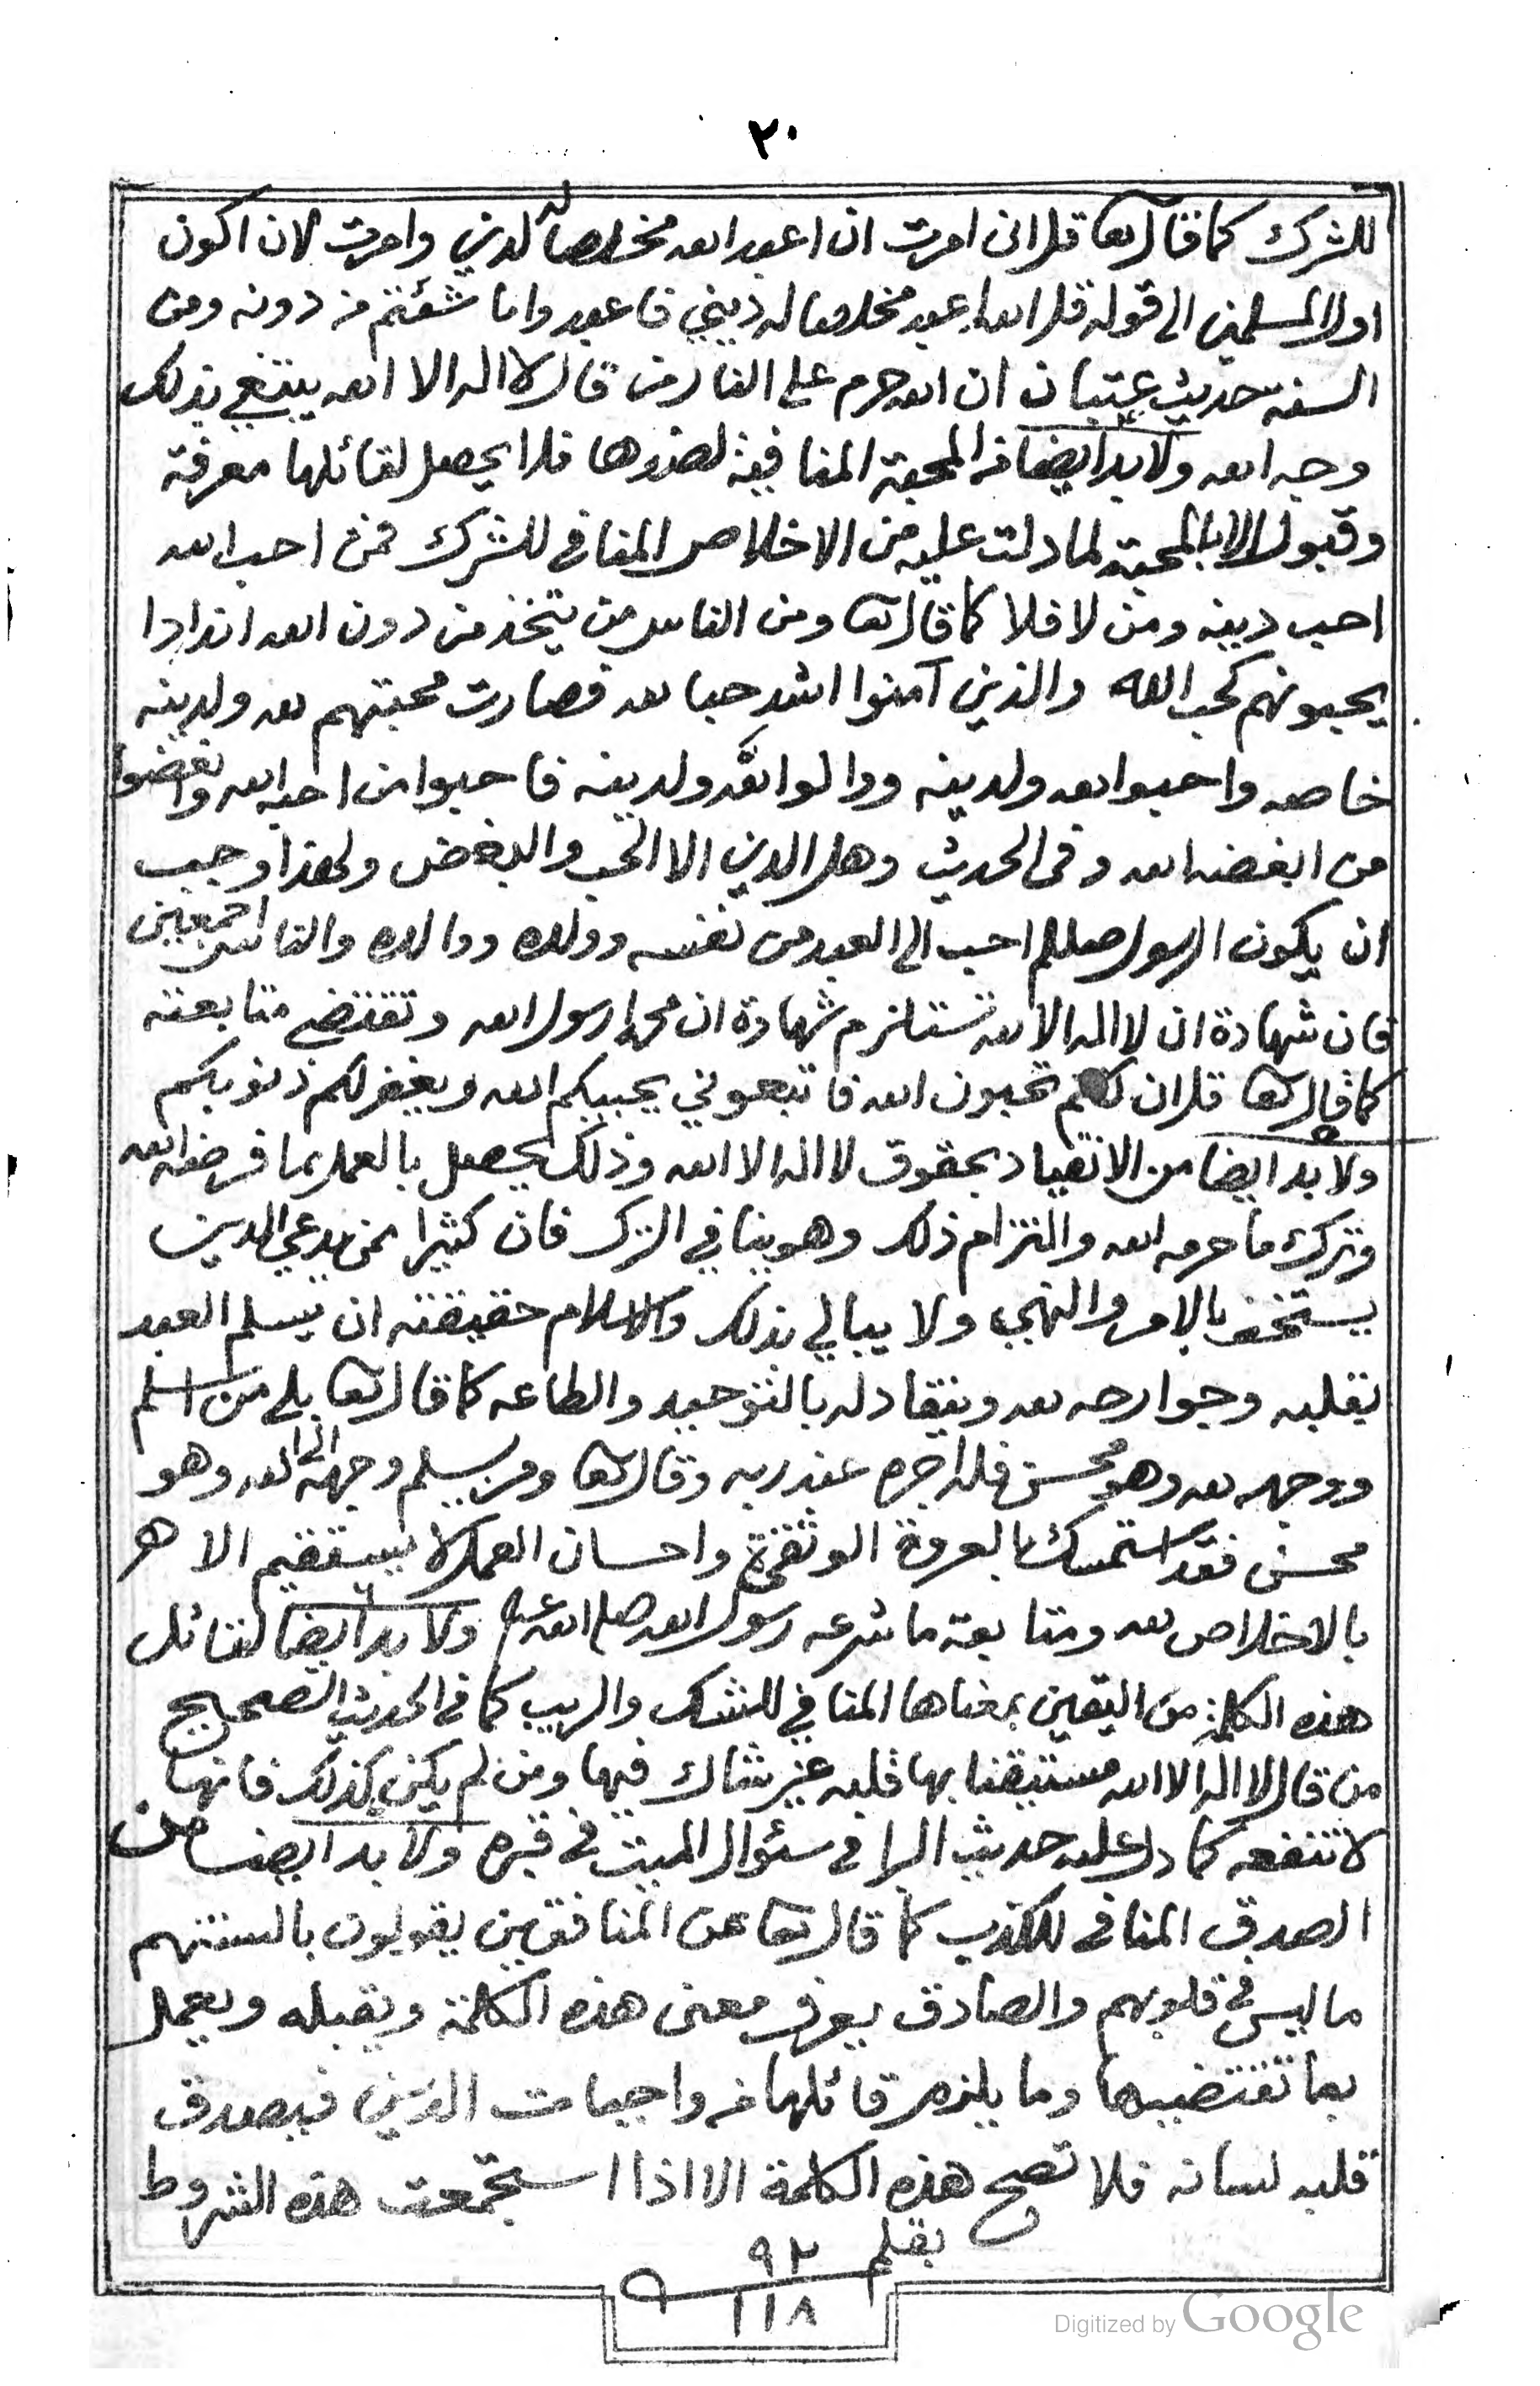 ٢٠
للشرك كما قال تعا قل اني امرت ان اعبد الله مخلصا له لدين وامرت لان اكون
اول المسلمين الى قوله قل الله اعبد مخلصا له ديني فاعبدوا ما شئتم من دونه ومن
السنة حديث عتبان ان الله حرم على النار من قال لا اله الا الله يبتغي بذلك
وجه الله ولا بد ايضا من المحبة المنافية لضدها فلا يحصل لقائلها معرفة
وقبول الا بالمحبة لما دلت عليه من الاخلاص المنافي للشرك فمن احب الله
احب دينه ومن لا فلا كما قال تعا ومن الناس من يتخذ من دون الله اندادا
يحبونهم كحب الله والذين آمنوا اشد حبا لله فصارت محبتهم لله ولدينه
خاصه واحبوا لله ولدينه ووالوا لله ولدينه فاحبوا من احبه الله وابغضوا
من ابغضه الله وفي الحديث وهل الدين الا الحب والبغض ولهذا وجب
ان يكون الرسول صللم احب الى العبد من نفسه وولده ووالده والناس اجمعين
فان شهادة ان لا اله الا الله تستلزم شهادة ان محمدا رسول الله وتقتضي متابعته
كما قال تعا قل ان كنتم تحبون الله فاتبعوني يحببكم الله ويغفر لكم ذنوبكم
ولا بد ايضا من الانقياد بحقوق لا اله الا الله وذلك يحصل بالعمل بما فرضه الله
وترك ما حرمه الله والتزام ذلك وهو ينافي الترك فان كثيرا ممن يدعي الدين
يستخف بالامر والنهي ولا يبالي بذلك والاسلام حقيقته ان يسلم العبد
بقلبه وجوارحه لله وينقاد له بالتوحيد والطاعه كما قال تعا بلى من اسلم
ووجهه لله وهو محسن فله اجره عند ربه وقال تعا ومن يسلم وجهه الى الله وهو
محسن فقد استمسك بالعروة الوثقى واحسان العمل لا يستقيم الا هر
بالاخلاص لله ومتابعة ما شرعه رسول الله صلى الله عليه ولا بد ايضا لقائل
هذه الكلمة من اليقين بمعناها المنافي للشك والريب كما في الحديث الصحيح
من قال لا اله الا الله مستيقنا بها قلبه غير شاك فيها ومن لم يكن كذلك فانها
لا تنفعه كما دل عليه حديث البرا في سئوال الميت في قبره ولا بد ايضا من
الصدق المنافي للكذب كما قال تعا عن المنافقين يقولون بالسنتهم
ما ليس في قلوبهم والصادق يعرف معنى هذه الكلمة ويقبله ويعمل
بما تقتضيه وما يلزم قائلها من واجبات الدين فيصدق
قلبه لسانه فلا تصح هذه الكلمة الا اذا استجمعت هذه الشروط
بقلم ٩٢
١١٨
Digitized by Google